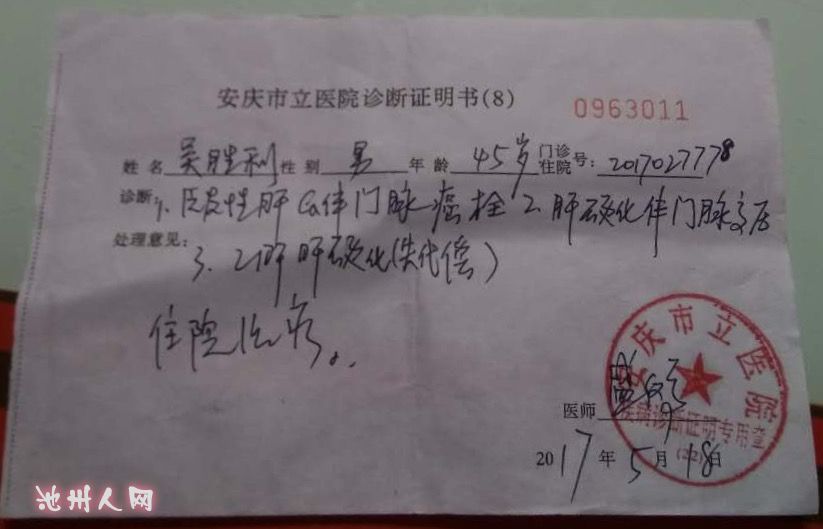 安庆市立医院诊断证明书(8)
0963011
姓名 吴胜利 性别 男 年龄 45岁 门诊住院号: 2017027778
诊断: 1. 原发性肝Ca伴门脉癌栓 2. 肝硬化伴门脉高压
处理意见:
3. 乙肝肝硬化(失代偿)
住院治疗。
安庆市立医院
疾病诊断证明专用章
(22)
医师
2017年5月18日
池州人网